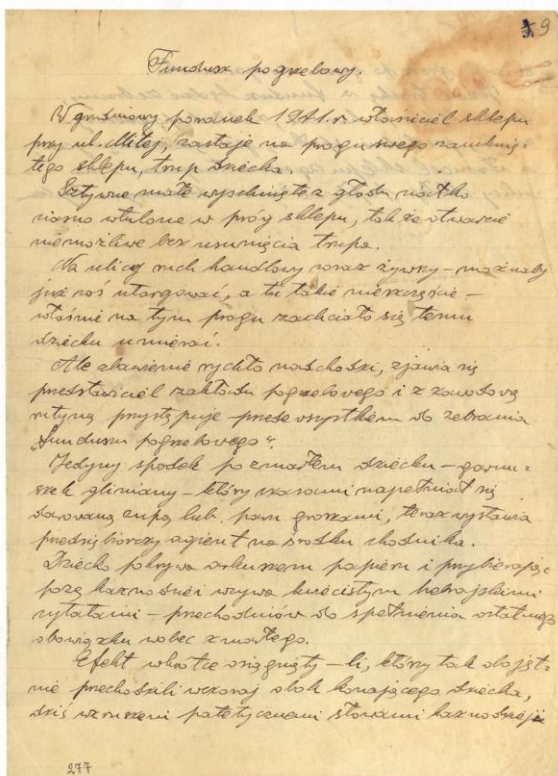 9
Fundusz pogrzebowy.
W grudniowy poranek 1941.r. właściciel sklepu
przy ul. Miłej, zastaje na progu swego zamknię-
tego sklepu, trup dziecka.
Sztywne małe wyschnięte z głodu ciałko
ciasno wtulone w próg sklepu, tak że otwarcie
niemożliwe bez usunięcia trupa.
Na ulicy ruch handlowy coraz żywszy – możnaby
już coś utargować, a tu takie nieszczęście –
właśnie na tym progu zachciało się temu
dziecku umierać.
Ale zbawienie rychło nadchodzi, zjawia się
przedstawiciel zakładu pogrzebowego i z zawodową
rutyną przystępuje przedewszystkiem do zebrania
„funduszu pogrzebowego".
Jedyny spadek po zmarłem dziecku – garnu-
szek gliniany – który czasami napełniał się
darowaną zupą lub paru groszami, teraz wystawia
przedsiębiorczy agient na środku chodnika.
Dziecko pokrywa arkuszem papieru i przybierając
pozę kaznodziei wzywa kwiecistym hebrajskiemi
cytatami – przechodniów do spełnienia ostatniego
obowiązku wobec zmarłego.
Efekt wkrótce osiągnięty – ci, którzy tak obojęt-
nie przechodzili wczoraj obok konającego dziecka,
dziś wzruszeni patetycznemi słowami kaznodzieji
277